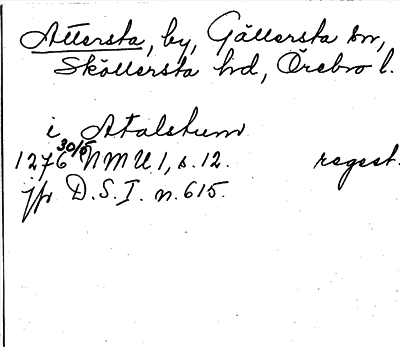 Attersta, by, Gällersta sn,
Sköllersta hd, Örebro l.
i Atalstum
1276 30/5 NMU 1, s. 12. regest.
jfr D.S. I. n. 615.